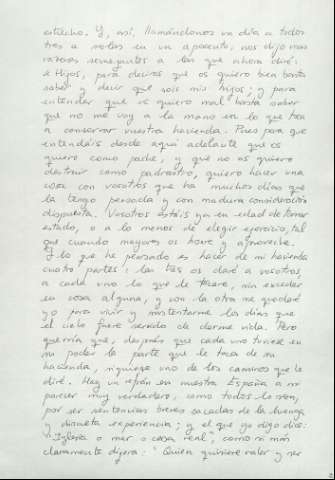 estrecho. Y, así, llamándonos un día a todos
tres a solas en un aposento, nos dijo unas
razones semejantes a las que ahora diré:
« Hijos, para deciros que os quiero bien basta
saber y decir que sois mis hijos; y para
entender que os quiero mal basta saber
que no me voy a la mano en lo que toca
a conservar vuestra hacienda. Pues para que
entendáis desde aquí adelante que os
quiero como padre, y que no os quiero
destruir como padrastro, quiero hacer una
cosa con vosotros que ha muchos días que
la tengo pensada y con madura consideración
dispuesta. Vosotros estáis ya en edad de tomar
estado, o a lo menos de elegir ejercicio, tal
que cuando mayores os honre y aproveche.
Y lo que he pensado es hacer de mi hacienda
cuatro partes: las tres os daré a vosotros,
a cada uno lo que le tocare, sin exceder
en cosa alguna, y con la otra me quedaré
yo para vivir y sustentarme los días que
el cielo fuere servido de darme vida. Pero
querría que, después que cada uno tuviese en
su poder la parte que le toca de su
hacienda, siguiese uno de los caminos que le
diré. Hay un refrán en nuestra España a mi
parecer muy verdadero, como todos lo son,
por ser sentencias breves sacadas de la luenga
y discreta experiencia; y el que yo digo dice:
"Iglesia o mar o casa real", como si más
claramente dijera: "Quien quisiere valer y ser